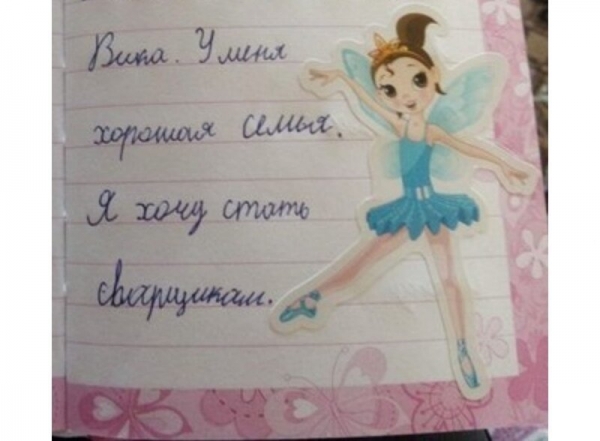 Вика. У меня
хорошая семья.
Я хочу стать
сварщикам.